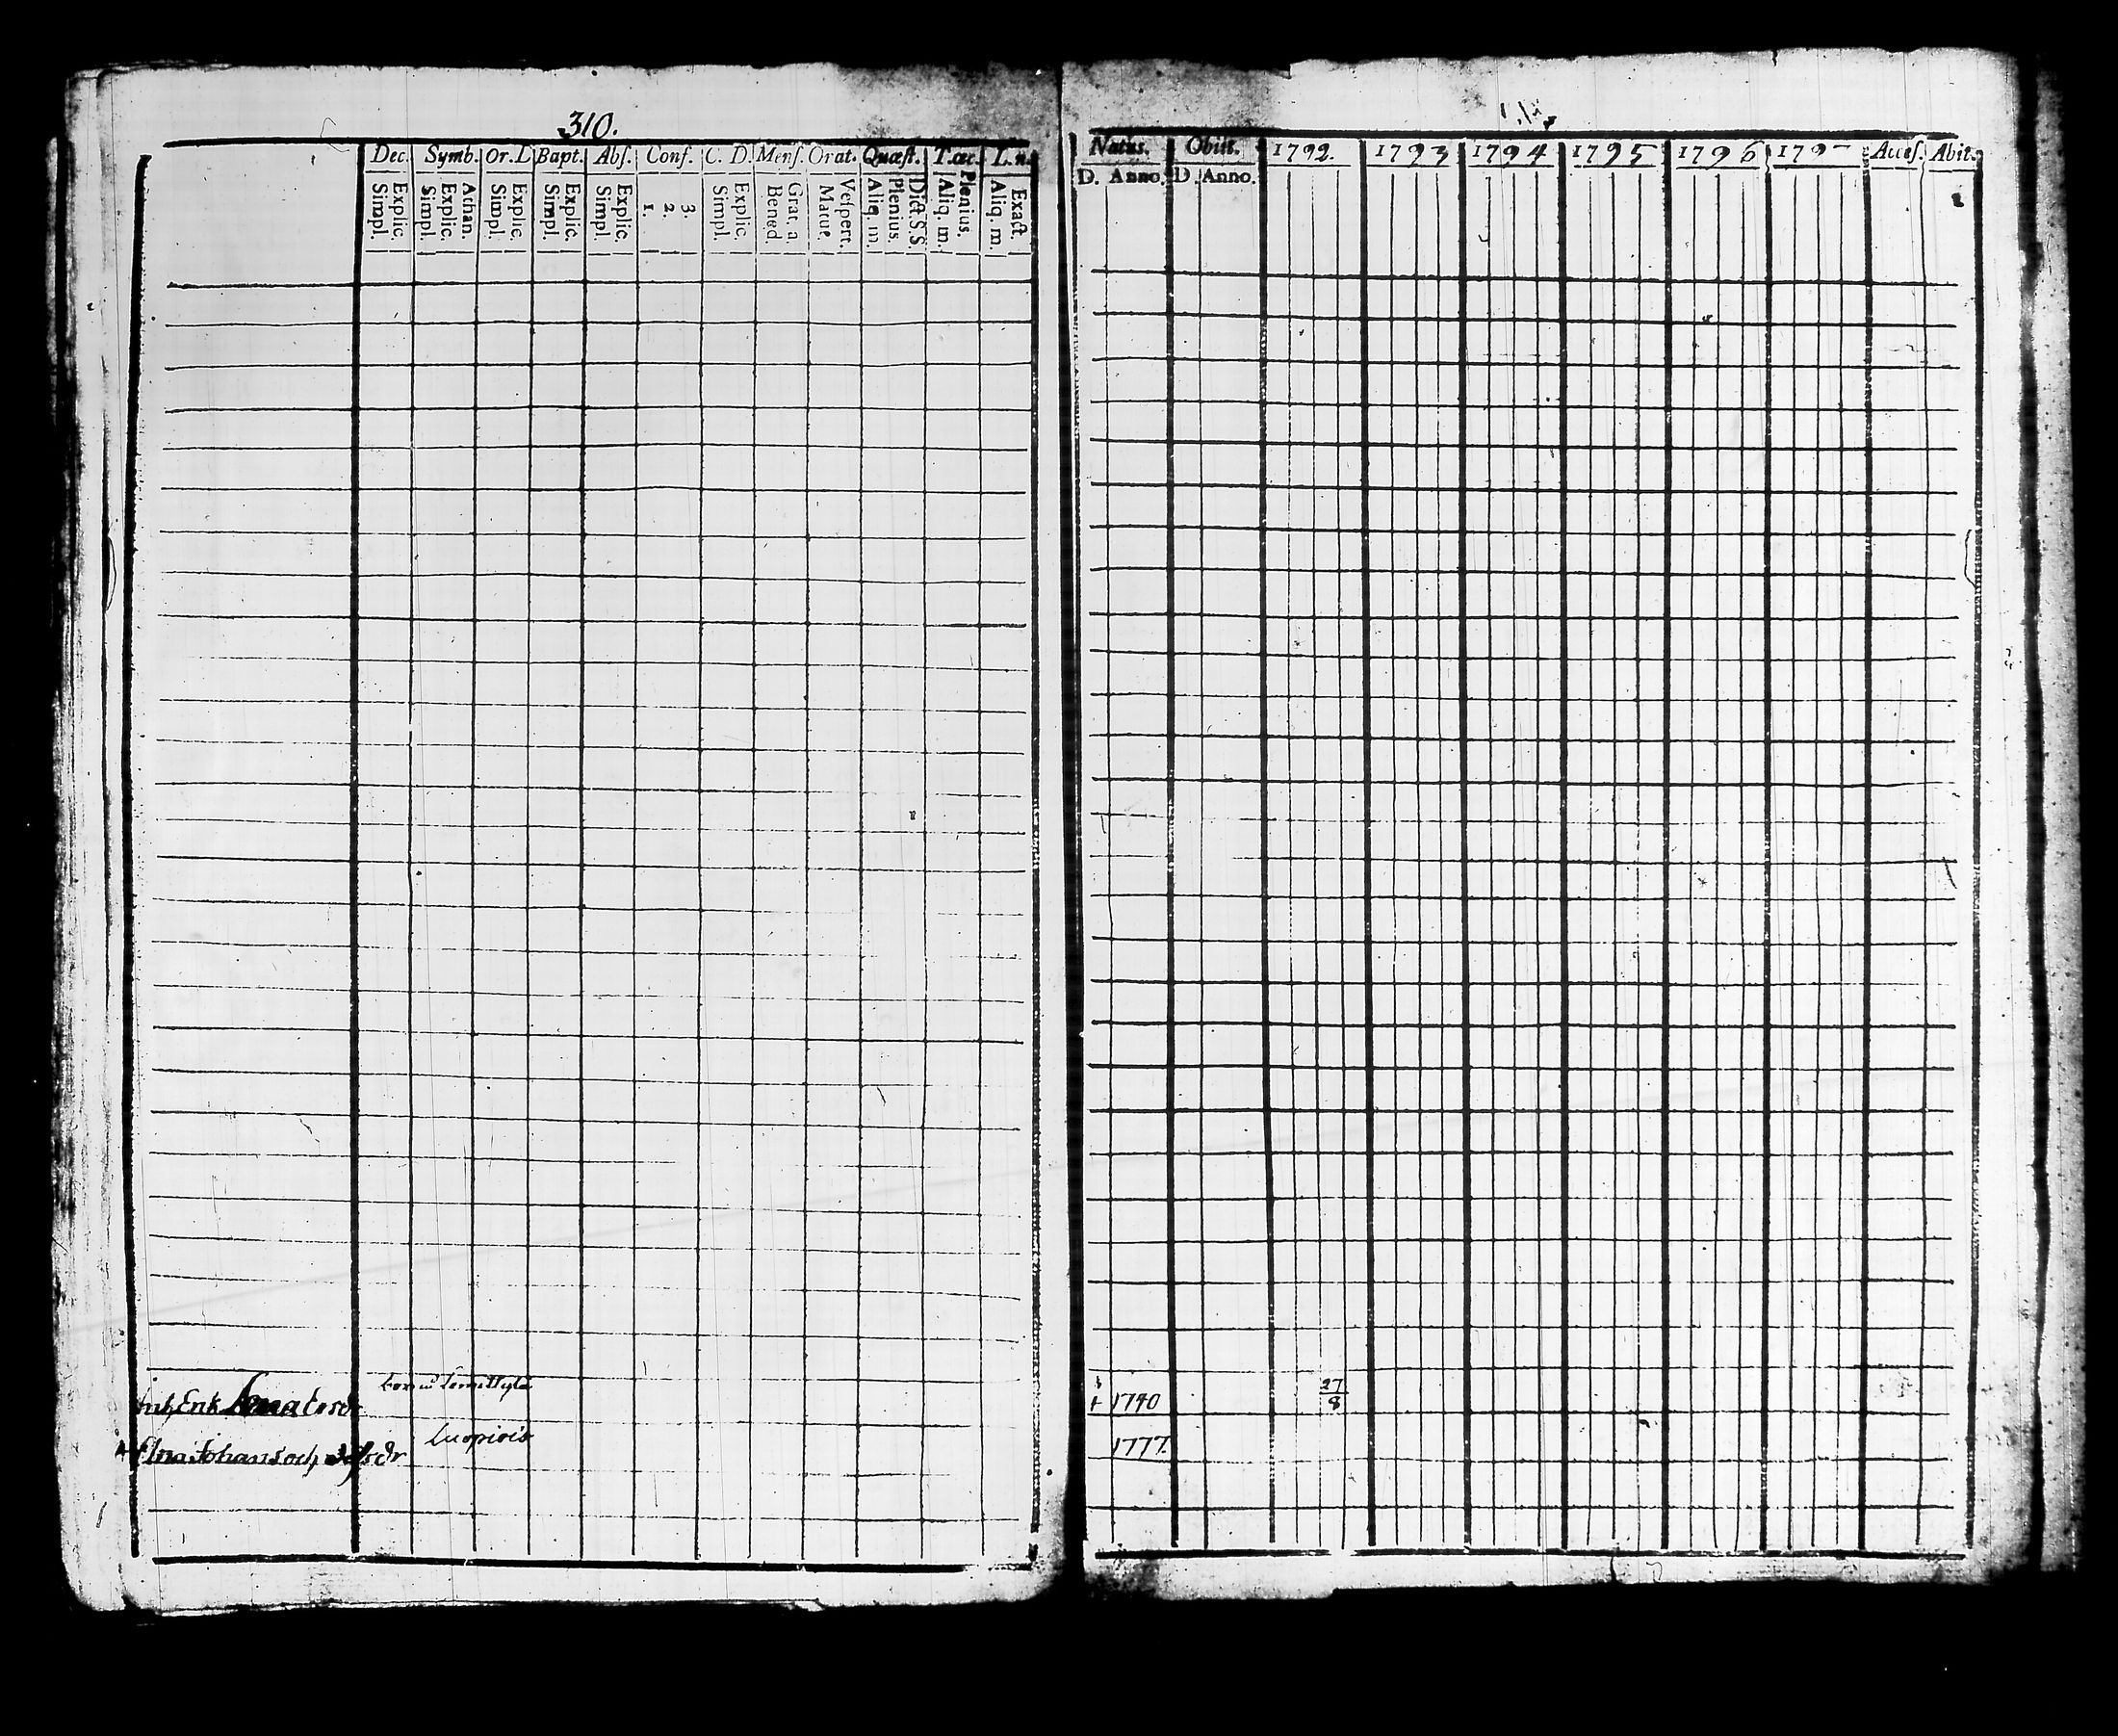 310.
Dec. Symb. Or. D Bapt. Abs. Conf. C. D. Mens. Orat. Quæst. T.œc. L.n.
Simpl. Explic. Simpl. Explic. Athan. Simpl. Explic. Simpl. Explic. Simpl. Explic. 1. 2. 3. Simpl. Explic. Bened. Grat. a. Matut. Vespert. Aliq. m. Plenius. Dict. S.S. Aliq. m. Plenius. Aliq. m. Exact.
Natus. Obiit. 1792. 1793 1794 1795 1796 179 Acces. Abit.
D. Anno. D. Anno.
Enk
27
1740 8
Luopiois
1777.